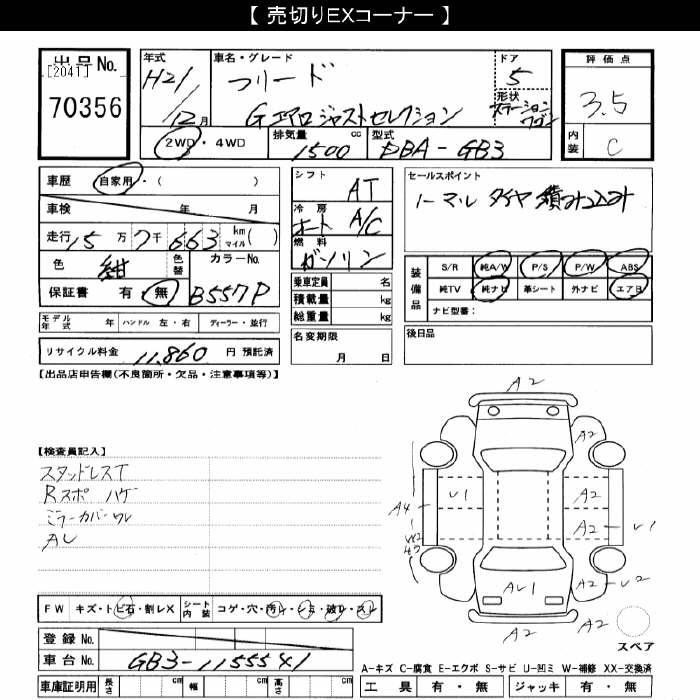 【 売切りEXコーナー 】
出品No.
[2041]
70356
年式
H21/12月
車名・グレード
フリード
Gエアロジャストセレクション
ドア
5
形状
ステーションワゴン
評価点
3.5
内装
C
2WD・4WD
排気量
1500 cc
型式
DBA-GB3
車歴 自家用・( )
車検 年 月
走行 15万7千663 km マイル( )
色 紺 色替 カラーNo.
保証書 有 無 B557P
シフト
AT
冷房
オート A/C
燃料
ガソリン
乗車定員 名
積載量 kg
総重量 kg
セールスポイント
ノーマルタイヤ積み込み
装備品
S/R 純A/W P/S P/W ABS
純TV 純ナビ 革シート 外ナビ エアB
ナビ型番:
モデル年式 年 ハンドル 左・右 ディーラー・並行
リサイクル料金 11,860 円 預託済
名変期限
月 日
後日品
【出品店申告欄(不良箇所・欠品・注意事項等)】
【検査員記入】
スタッドレスT
Rスポ ハゲ
ミラーカバーワレ
AL
A2
A2
U1
A2
A4
A2 U1
W2
AU1
A2 U2
A2
A2
スペア
FW キズ・トビ石・割レX シート内装 コゲ・穴・汚レ・シミ・破れ・スレ
登録No.
車台No. GB3-1155541
車庫証明用 長さ cm 幅 cm 高さ cm
A-キズ C-腐食 E-エクボ S-サビ U-凹ミ W-補修 XX-交換済
工具 有・無 ジャッキ 有・無